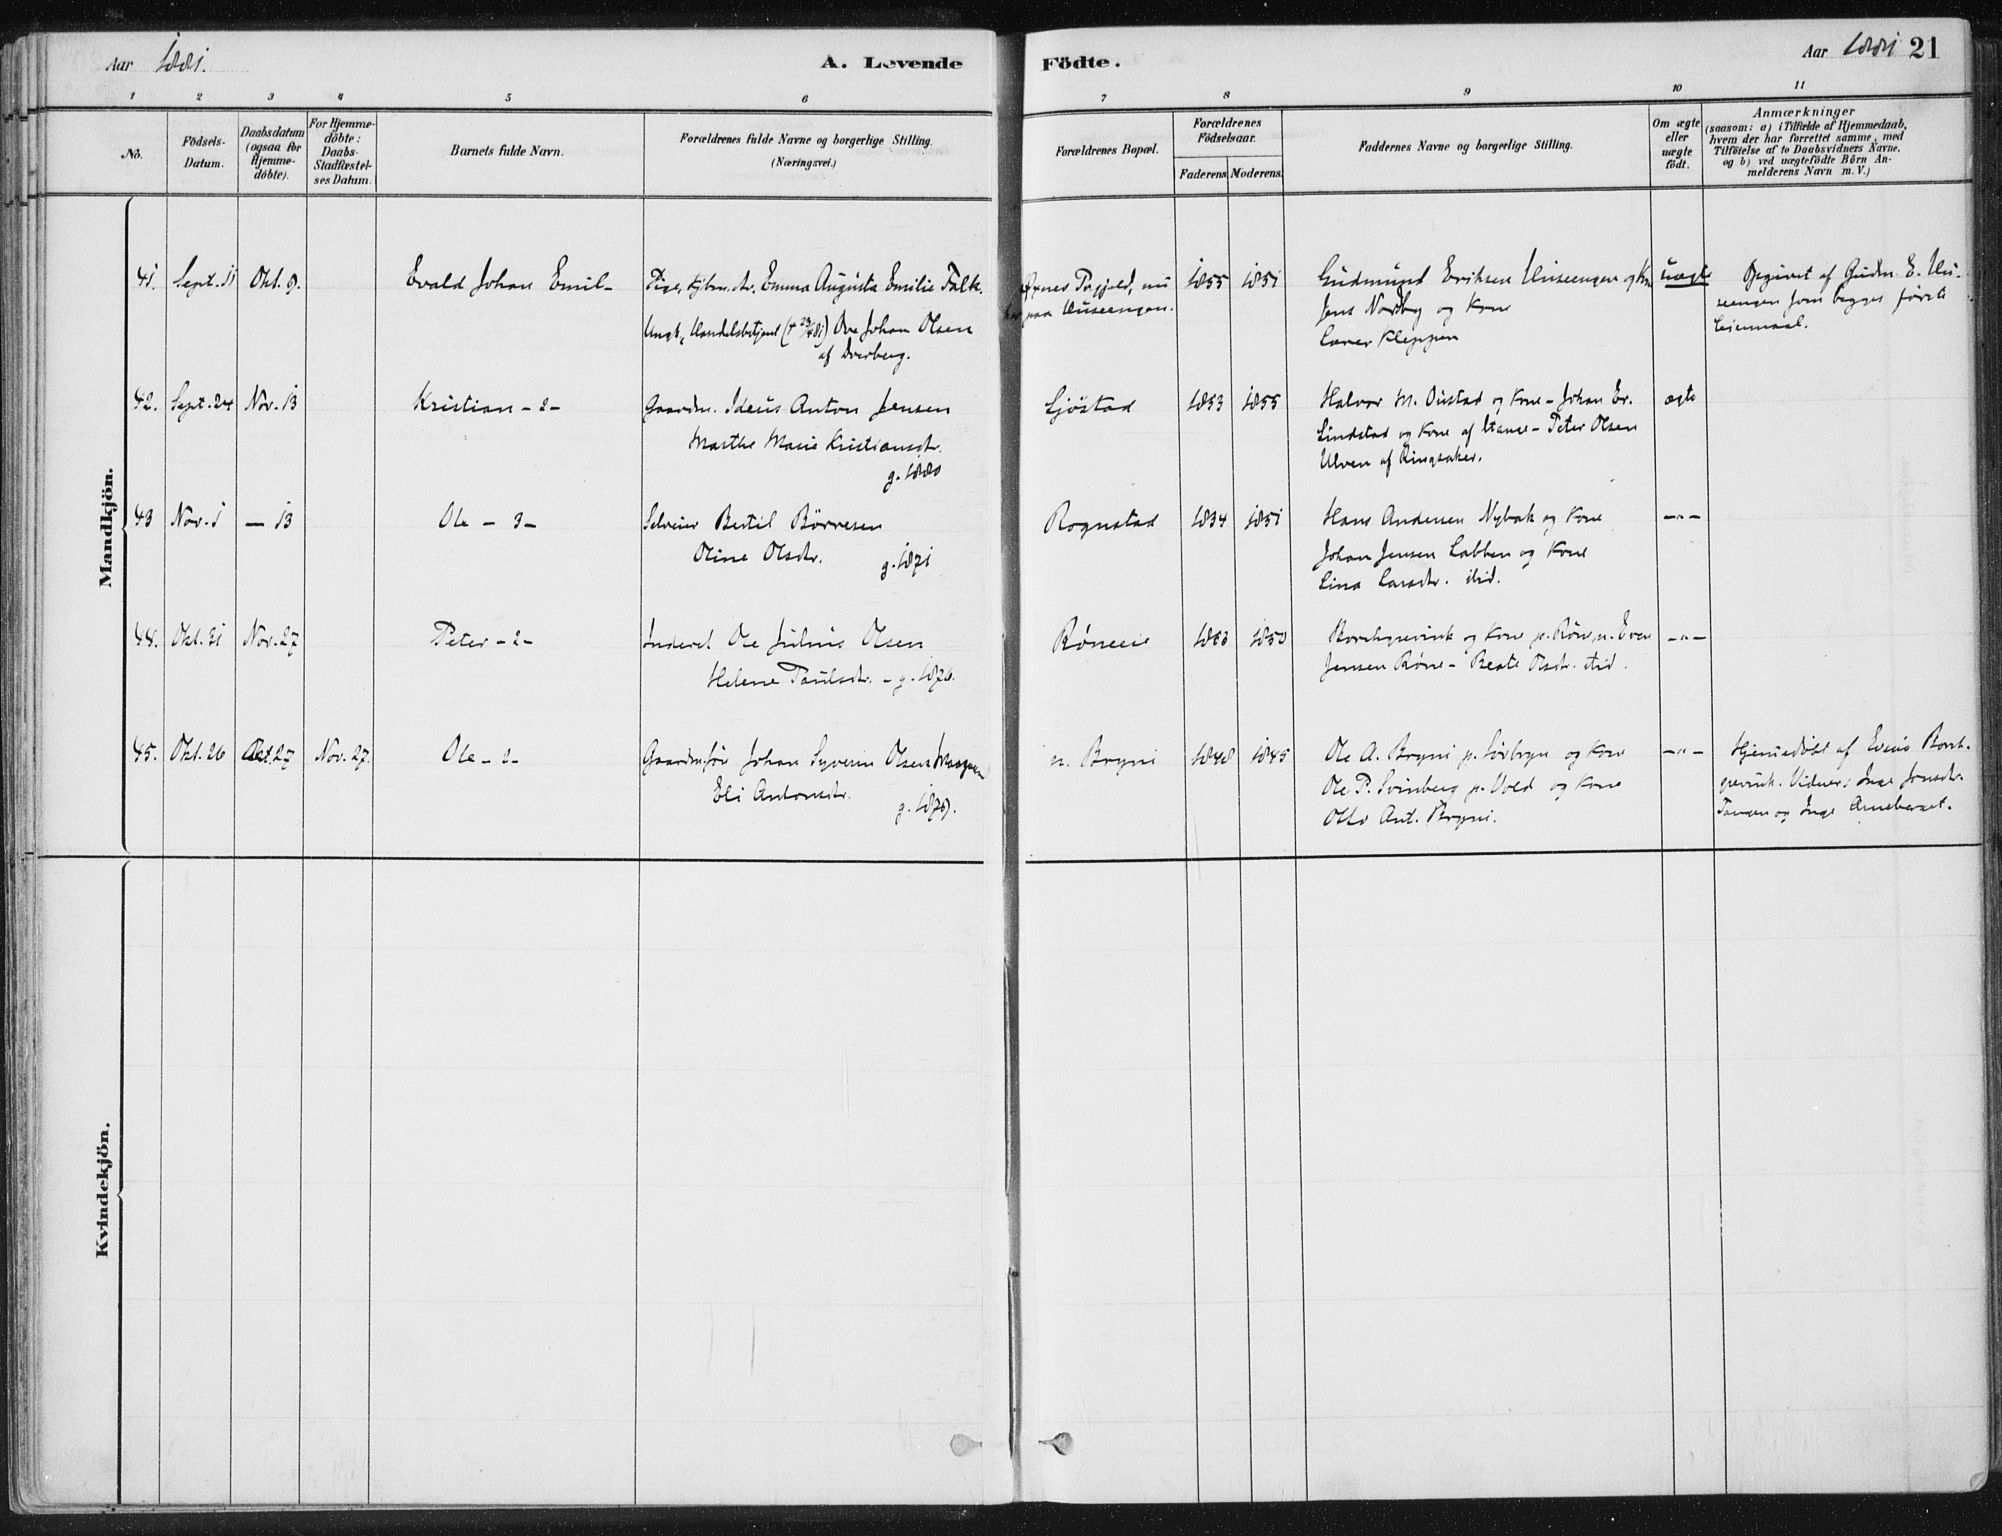 Aar 1881.
A. Levende
Födte.
Aar 1881 21
1 2 3 4 5 6 7 8 9 10 11
No.
Födsels-Datum.
Daabsdatum (ogsaa for Hjemme-döbte).
For Hjemme-döbte: Daabs-Stadfæstel-ses Datum.
Barnets fulde Navn.
Forældrenes fulde Navne og borgerlige Stilling.
(Næringsvei.)
Forældrenes Bopæl.
Forældrenes Födselsaar.
Faderens Moderens.
Faddernes Navne og borgerlige Stilling.
Om ægte eller uægte födt.
Anmærkninger
(saasom: a) i Tilfælde af Hjemmedaab,
hvem der har forrettet samme, med
Tilföielse af to Daabsvidners Navne,
og b) ved uægtefödte Börn An-
melderens Navn m. V.)
Mandkjön.
41. Sept. 11 Okt. 9. Evald Johan Emil-
Pige, Emma Augusta Emilie Falk.
Ungk, Handelsbetjent Ove Johan Olsen
af Dverberg.
Øxnes Prgjeld, nu
paa Huseengen.
1855 1851
Gudmund Eriksen Huseengen og Kone
Jens Nordby og Kone
Laver Kleppen
uægte
Opgivet af Gudm. E. Hu-
seengen som begges første
Leiermaal.
42. Sept. 24 Nov. 13 Kristian - 2 -
Gaardm. Anton Jensen
Marthe Marie Kristiansdr.
g. 1880
Sjöstad 1853 1855
Halvor M. Oustad og Kone - Johan Er.
Lindstad og Kone af Stange - Peter Olsen
Ulven af Ringsaker.
ægte
43 Nov. 1 — 13 Ole - 3 -
Selveier Bertil Børresen
Oline Olsdr. g. 1871
Rognstad 1834 1851
Hans Andersen Nybak og Kone
Johan Jensen Labben og Kone
Lina Larsdr. ibid.
—"—
44. Okt. 21 Nov. 27 Peter - 2 -
Inderst Ole Julius Olsen
Helene Paulsdr. - g. 1876.
Røneeie 1853 1850
Borchgrevink og Kone p. Røne, n. Even
Jensen Røne - Beate Olsdr. ibid.
—"—
45. Okt. 26 Okt. 27 Nov. 27. Ole - 2 -
Gaardm. Johan Syverin Olsen
Eli Antonsdr.
g. 1879.
n. Bryni 1848 1845
Ole A. Bryni p. Sörbryn og Kone
Ole P. Svinberg p. Vold og Kone
Otto Ant. Bryni.
—"—
Hjemmedøbt af Borch-
grevink. Vidner: Inge Jonsdr.
Tangen og Inge Arneberget.
Kvindekjön.